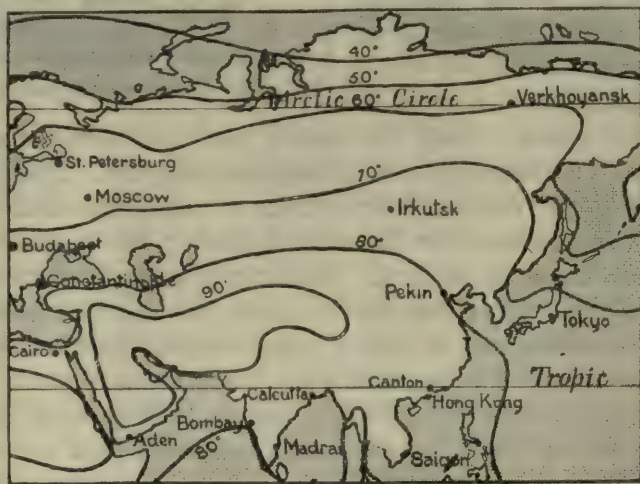 40°
50°
Arctic 60° Circle
Verkhoyansk
St. Petersburg
70°
Moscow
Irkutsk
Budapest
80°
Constantinople
90°
Pekin
Tokyo
Cairo
Tropic
Calcutta
Canton
Hong Kong
Bombay
Aden
80°
Madras
Saigon